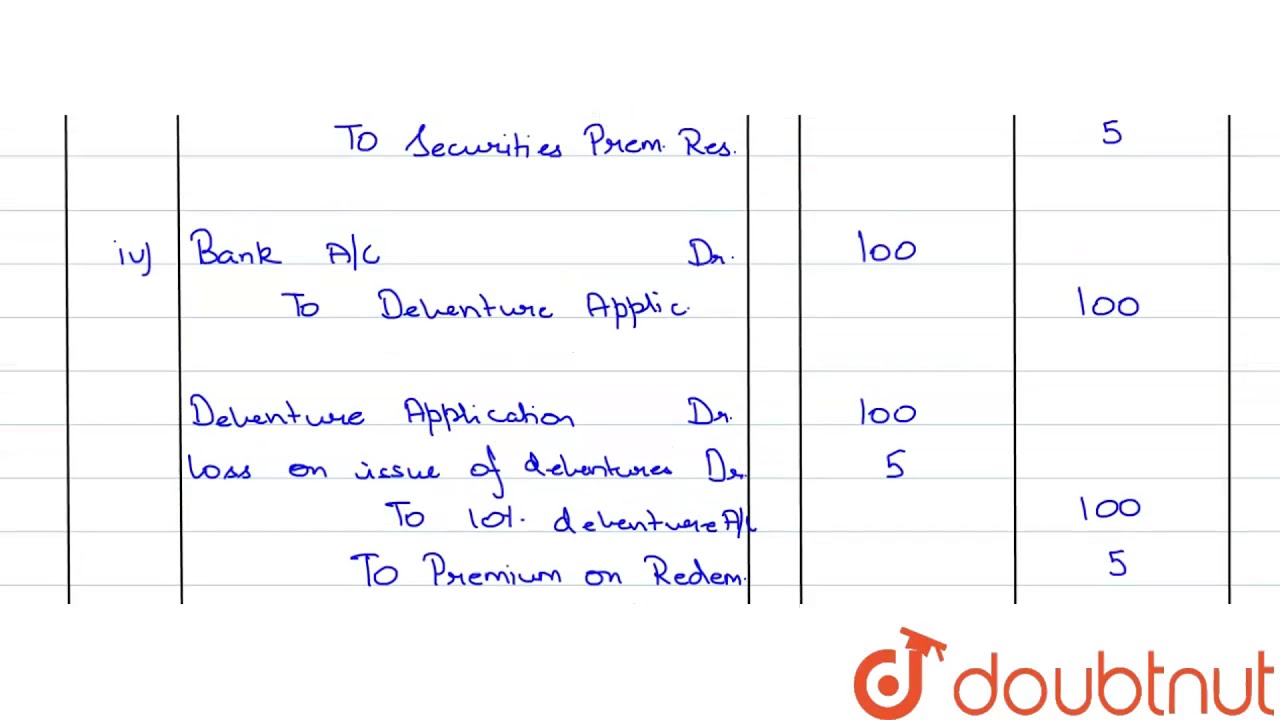 To Securities Prem. Res. 5
iv) Bank A/C Dr. 100
To Debenture Applic. 100
Debenture Application Dr. 100
loss on issue of debentures Dr. 5
To 10%. debenture A/c 100
To Premium on Redem. 5
doubtnut